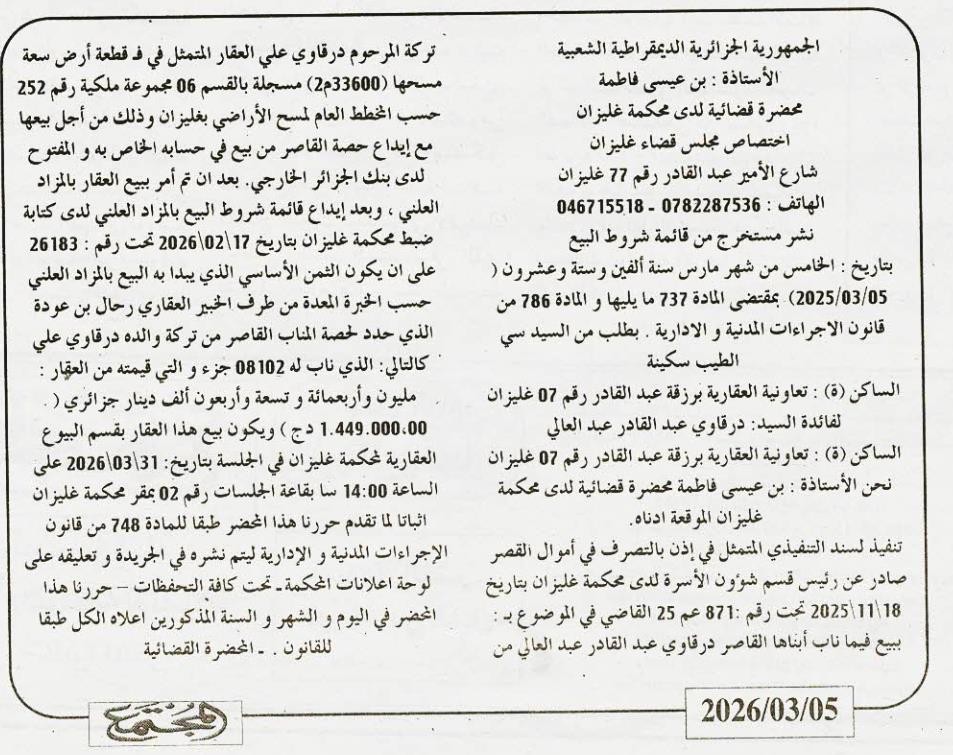 الجمهورية الجزائرية الديمقراطية الشعبية
الأستاذة : بن عيسى فاطمة
محضرة قضائية لدى محكمة غليزان
اختصاص مجلس قضاء غليزان
شارع الأمير عبد القادر رقم 77 غليزان
الهاتف : 0782287536 ـ 046715518
نشر مستخرج من قائمة شروط البيع
بتاريخ : الخامس من شهر مارس سنة ألفين وستة وعشرون (
2025/03/05) بمقتضى المادة 737 ما يليها و المادة 786 من
قانون الاجراءات المدنية و الادارية . بطلب من السيد سي
الطيب سكينة
الساكن (ة) : تعاونية العقارية برزقة عبد القادر رقم 07 غليزان
لفائدة السيد: درقاوي عبد القادر عبد العالي
الساكن (ة) : تعاونية العقارية برزقة عبد القادر رقم 07 غليزان
نحن الأستاذة : بن عيسى فاطمة محضرة قضائية لدى محكمة
غليزان الموقعة ادناه.
تنفيذ لسند التنفيذي المتمثل في إذن بالتصرف في أموال القصر
صادر عن رئيس قسم شؤون الأسرة لدى محكمة غليزان بتاريخ
18\11\2025 تحت رقم :871 عم 25 القاضي في الموضوع بـ :
ببيع فيما ناب أبناها القاصر درقاوي عبد القادر عبد العالي من
تركة المرحوم درقاوي علي العقار المتمثل في فـ قطعة أرض سعة
مسحها (33600م2) مسجلة بالقسم 06 مجموعة ملكية رقم 252
حسب المخطط العام لمسح الأراضي بغليزان وذلك من أجل بيعها
مع إيداع حصة القاصر من بيع في حسابه الخاص به و المفتوح
لدى بنك الجزائر الخارجي. بعد ان تم أمر ببيع العقار بالمزاد
العلني ، وبعد إيداع قائمة شروط البيع بالمزاد العلني لدى كتابة
ضبط محكمة غليزان بتاريخ 17\02\2026 تحت رقم : 26183
على ان يكون الثمن الأساسي الذي يبدا به البيع بالمزاد العلني
حسب الخبرة المعدة من طرف الخبير العقاري رحال بن عودة
الذي حدد لحصة المناب القاصر من تركة والده درقاوي علي
كالتالي: الذي ناب له 08102 جزء و التي قيمته من العقار :
مليون وأربعمائة و تسعة وأربعون ألف دينار جزائري ( .
1.449.000،00 دج ) ويكون بيع هذا العقار بقسم البيوع
العقارية لمحكمة غليزان في الجلسة بتاريخ: 31\03\2026 على
الساعة 14:00 سا بقاعة الجلسات رقم 02 بمقر محكمة غليزان
اثباتا لما تقدم حررنا هذا المحضر طبقا للمادة 748 من قانون
الإجراءات المدنية و الإدارية ليتم نشره في الجريدة و تعليقه على
لوحة اعلانات المحكمة ـ تحت كافة التحفظات – حررنا هذا
المحضر في اليوم و الشهر و السنة المذكورين اعلاه الكل طبقا
للقانون . ـ المحضرة القضائية
2026/03/05
المجتمع